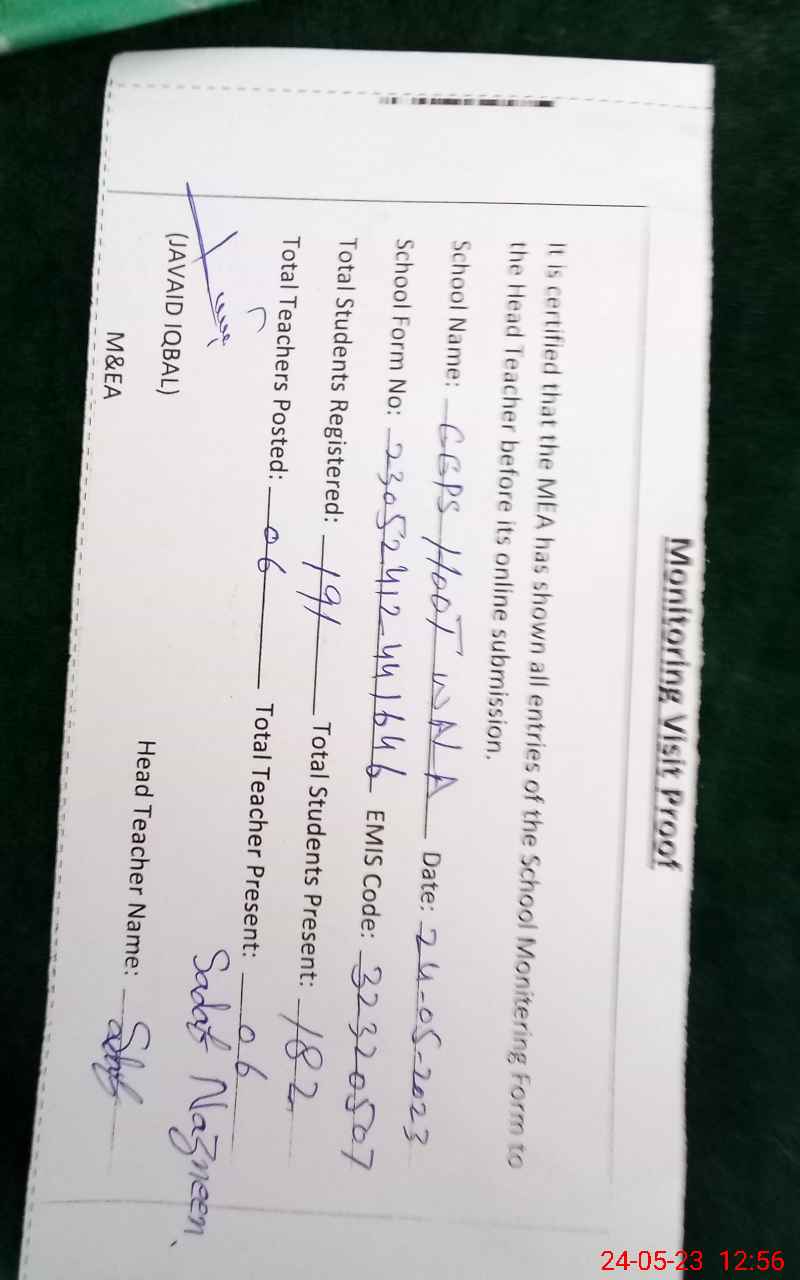 Monitoring Visit Proof
It is certified that the MEA has shown all entries of the School Monitering Form to
the Head Teacher before its online submission.
School Name: GGPS HOOT WALA Date: 24-05-2023
School Form No: 2305241244 1646 EMIS Code: 32320507
Total Students Registered: 191 Total Students Present: 182
Total Teachers Posted: 06 Total Teacher Present: 06
Sadaf Nazneen
(JAVAID IQBAL) Head Teacher Name: Sadaf
M&EA
24-05-23 12:56